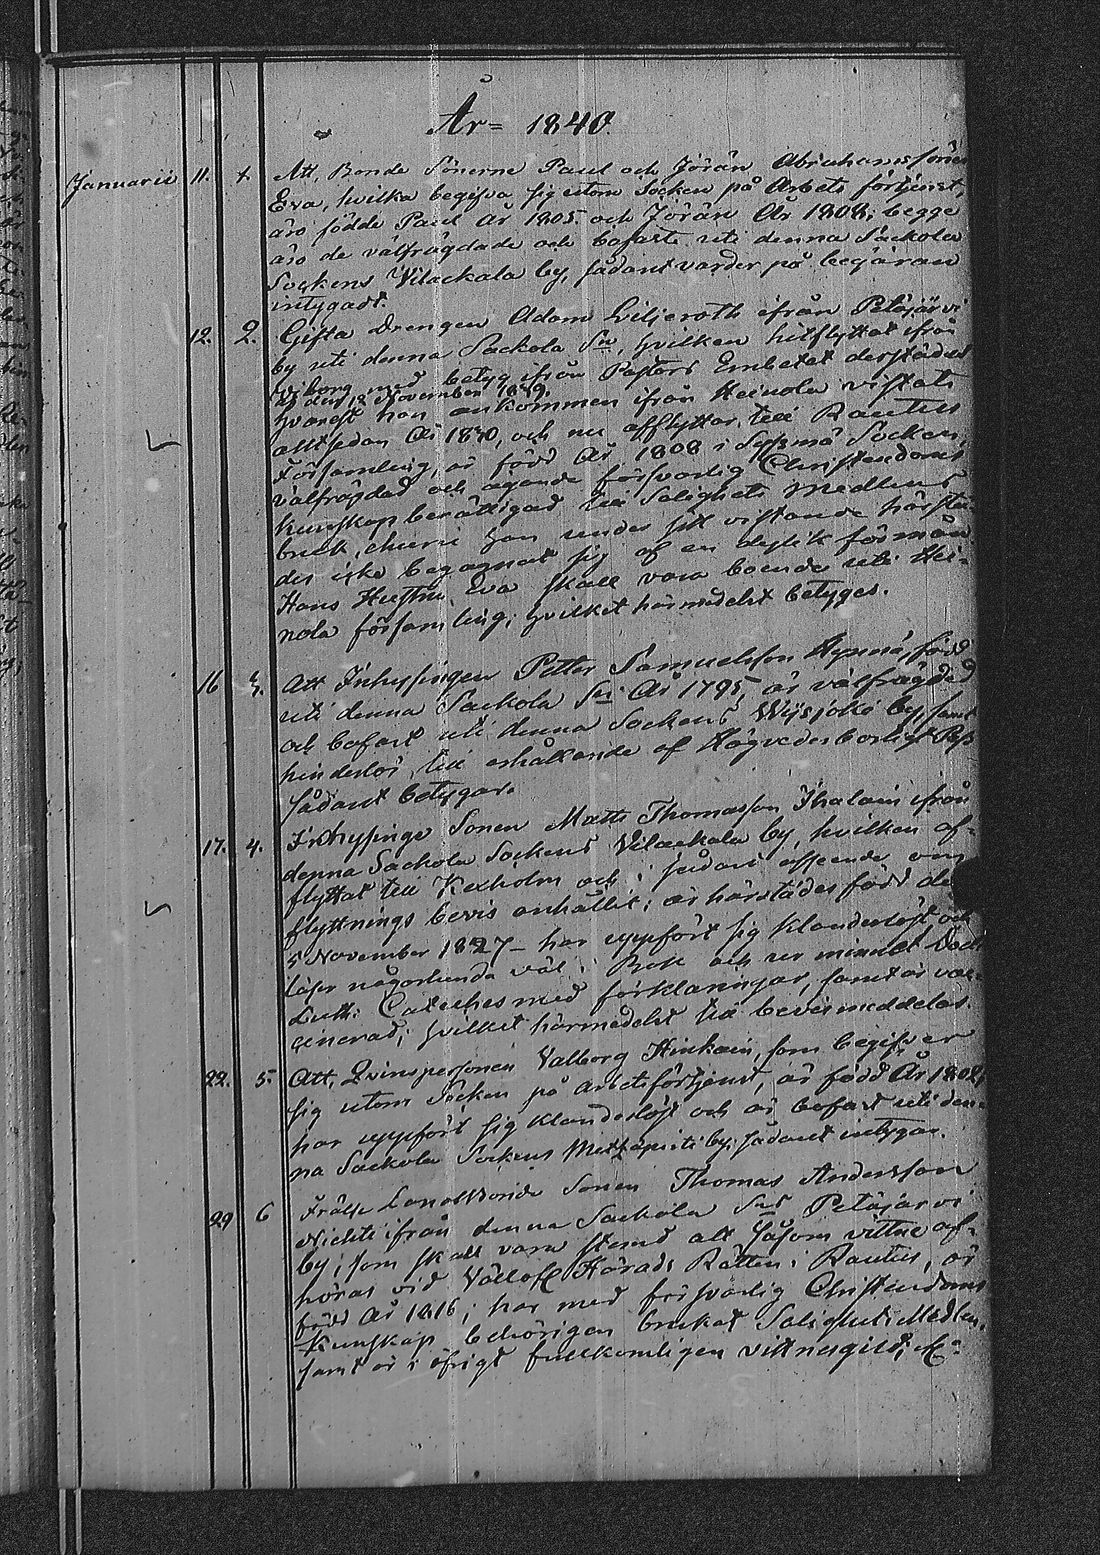 År 1840.
Januarii 11. 1. Att, Bonde Sönerne Paul och Jöran Abrahams söner
Eva, hvilka begifva sig utom Socken på Arbets förtjenst,
äro födde Paul År 1805. och Jöran År 1808; begge
äro de välfrägdade och bofaste uti denna Sackola
Sockens Vilackala by, sådant varder på begäran
intygadt.
12. 2. Gifta Drengen Adam Liljeroth ifrån Petäjärvi
by uti denna Sackola Sn, hvilken hitflyttat ifrån
Wiborg med betyg ifrån Pastors Embetet derstädes
af den 12 November 1839.
hvarest han ankommen ifrån Heinola vistats
alltsedan År 1830, och nu afflyttar till Rautus
Församling, är född År 1808 i Sysmä Socken,
välfrägdad och ägande försvarlig Christendoms
kunskap berättigad till Salighets Medlens
bruk, ehuru han under sitt vistande härstä-
des icke begagnat sig af en dylik förmån
Hans Hustru Eva skall vara boende uti Hei-
nola församling; hvilket härmedelst betyges.
16 3. Att Inhysingen Petter Samuelsson Hynnä, född
uti denna Sackola Sn År 1795, är välfrägdad
och bofast uti denna Sockens Wiisjoki by, samt
hinderlös till erhållande af Högvederborligt Pass
sådant betygar.
17. 4. Inhysinge Sonen Matts Thomasson Ihalain ifrån
denna Sackola Sockens Vilackala by, hvilken af-
flyttat till Kexholm och i sådant afseende om
flyttnings bevis anhållit; är härstädes född den
5 November 1827 – har uppfört sig klanderlöst och
läser någorlunda väl i Bok och ur minnet Doct.
Luth: Cateches med förklaningar, samt är vac-
cinerad; hvilket härmedelst till bevis meddelas.
22. 5. Att, Qvinspersonen Valborg Hinkain, som begifver
sig utom Socken på arbetsförtjenst, är född År 1802,
har uppfört sig klanderlöst och är bofast uti den-
na Sackola Sockens Metzäpirti by; sådant intygar.
29 6 Frälse Landbonde Sonen Thomas Andersson
ifrån denna Sackola Sns Petäjärvi
by, som skall vara stemd att såsom vittne af-
höras vid Vällofl Härads Rätten i Rautus, är
född År 1816; har med försvarlig Christendoms
Kunskap behörigen brukat Salighets Medlen,
samt är i öfrigt fullkomligen vittnesgild; &c: